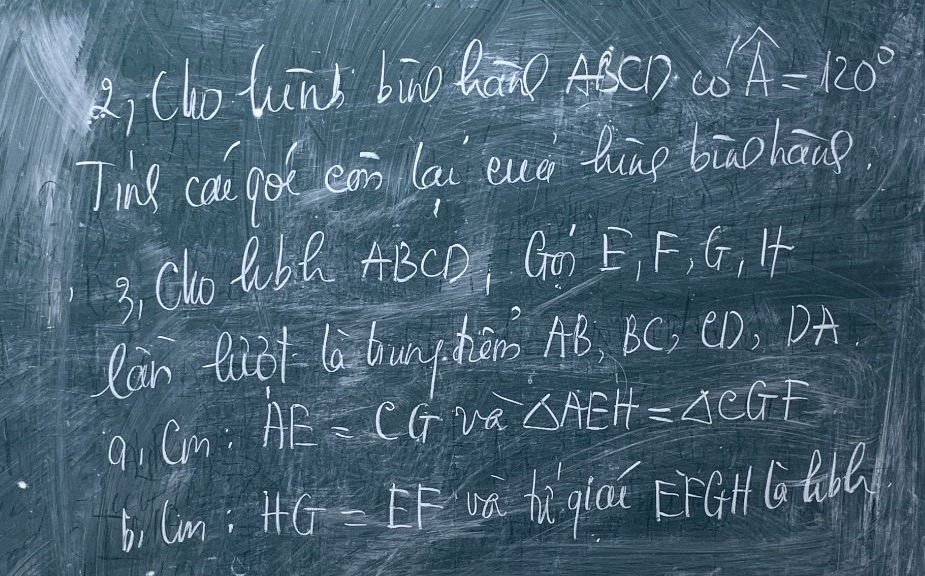 2, Cho hình bình hành ABCD có Â = 120°
Tính các góc còn lại của hình bình hành.
3, Cho hbh ABCD, Gọi E, F, G, H
lần lượt là trung điểm AB, BC, CD, DA.
a, Cm : AE = CG và △AEH = △CGF
b, Cm : HG = EF và tứ giác EFGH là hbh.